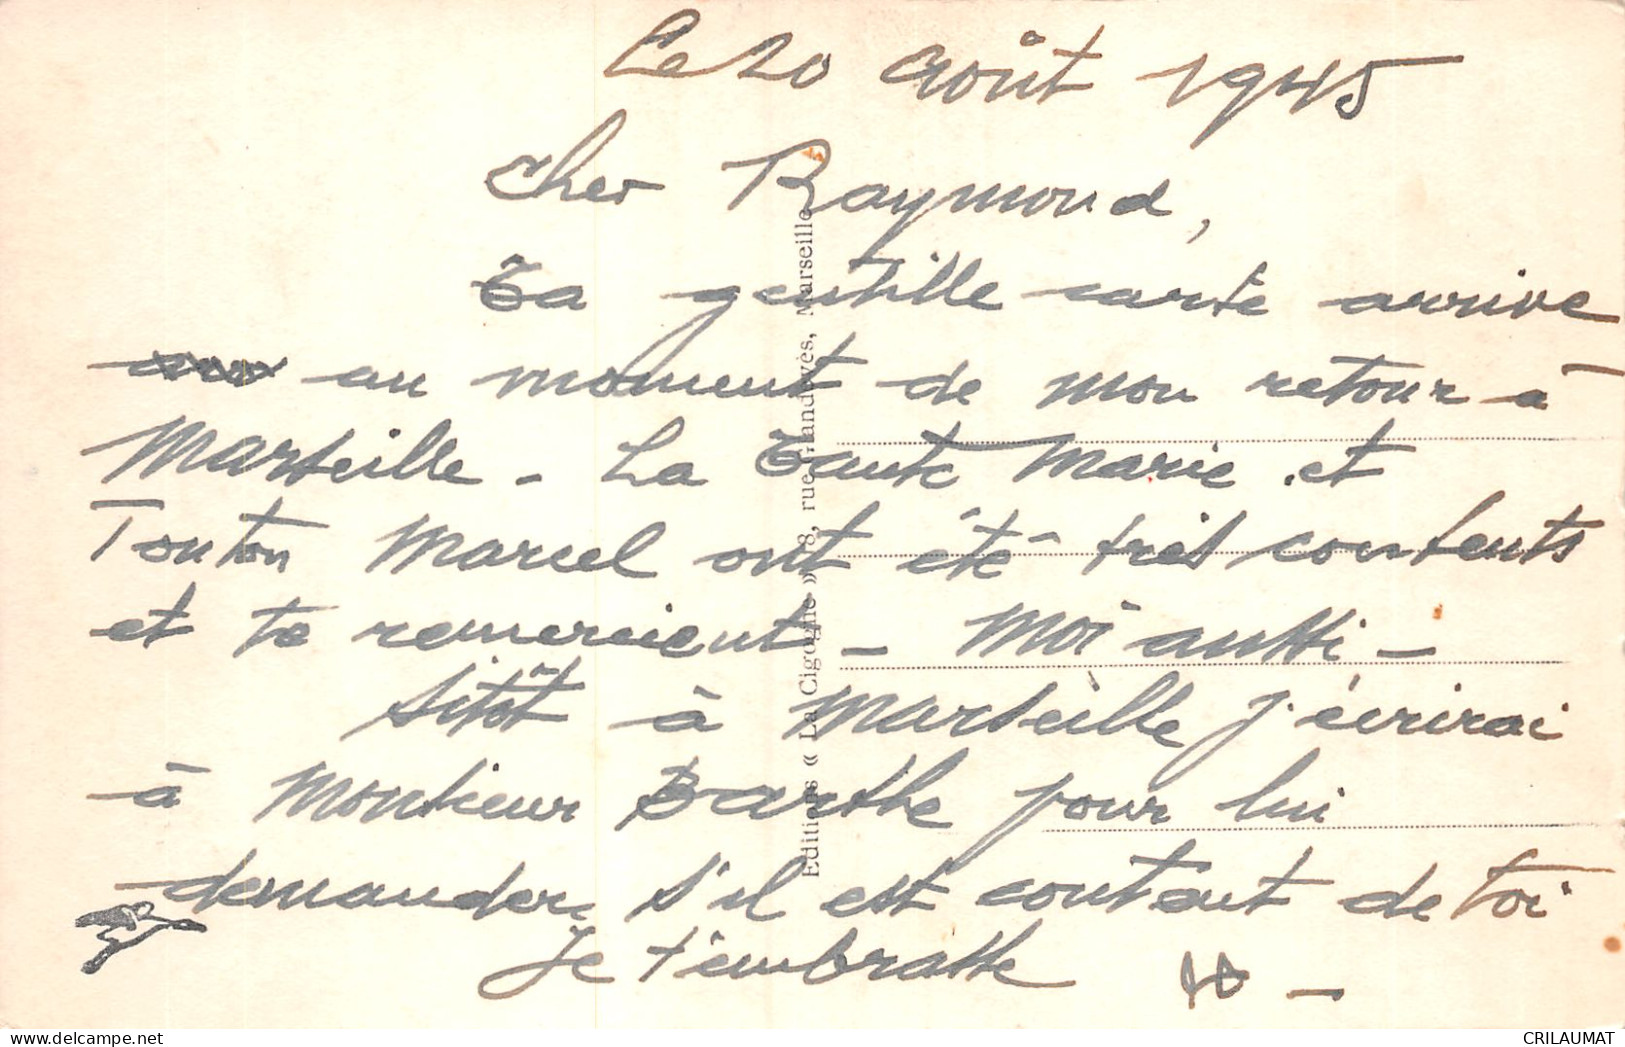 Le 20 Août 1945
Cher Raymond,
Ta gentille carte arrive
au moment de mon retour à
Marseille - La Tante Marie et
Tonton Marcel ont été très contents
et te remercient - Moi aussi -
Sitôt à Marseille j'écrirai
à Monsieur Barthe pour lui
demander s'il est content de toi
Je t'embrasse
Editions « La Cigogne » 18, rue Vandevès, Marseille
CRILAUMAT